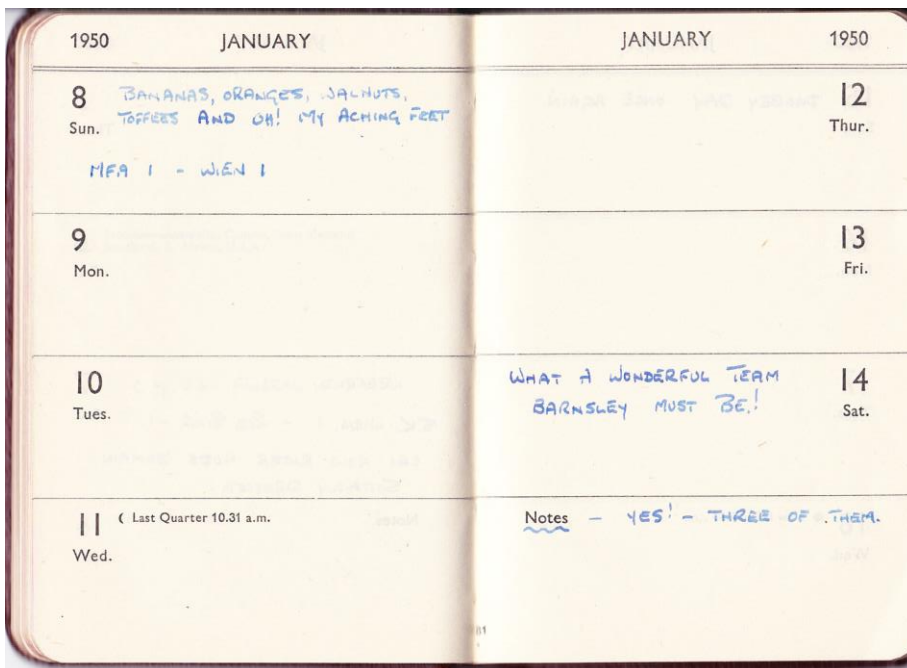 1950 JANUARY
8 BANANAS, ORANGES, WALNUTS,
Sun. TOFFEES AND OH! MY ACHING FEET
MFA 1 - WIEN 1
9
Mon.
10
Tues.
11 ☾ Last Quarter 10.31 a.m.
Wed.
JANUARY 1950
12
Thur.
13
Fri.
WHAT A WONDERFUL TEAM 14
BARNSLEY MUST BE! Sat.
Notes - YES! - THREE OF THEM.